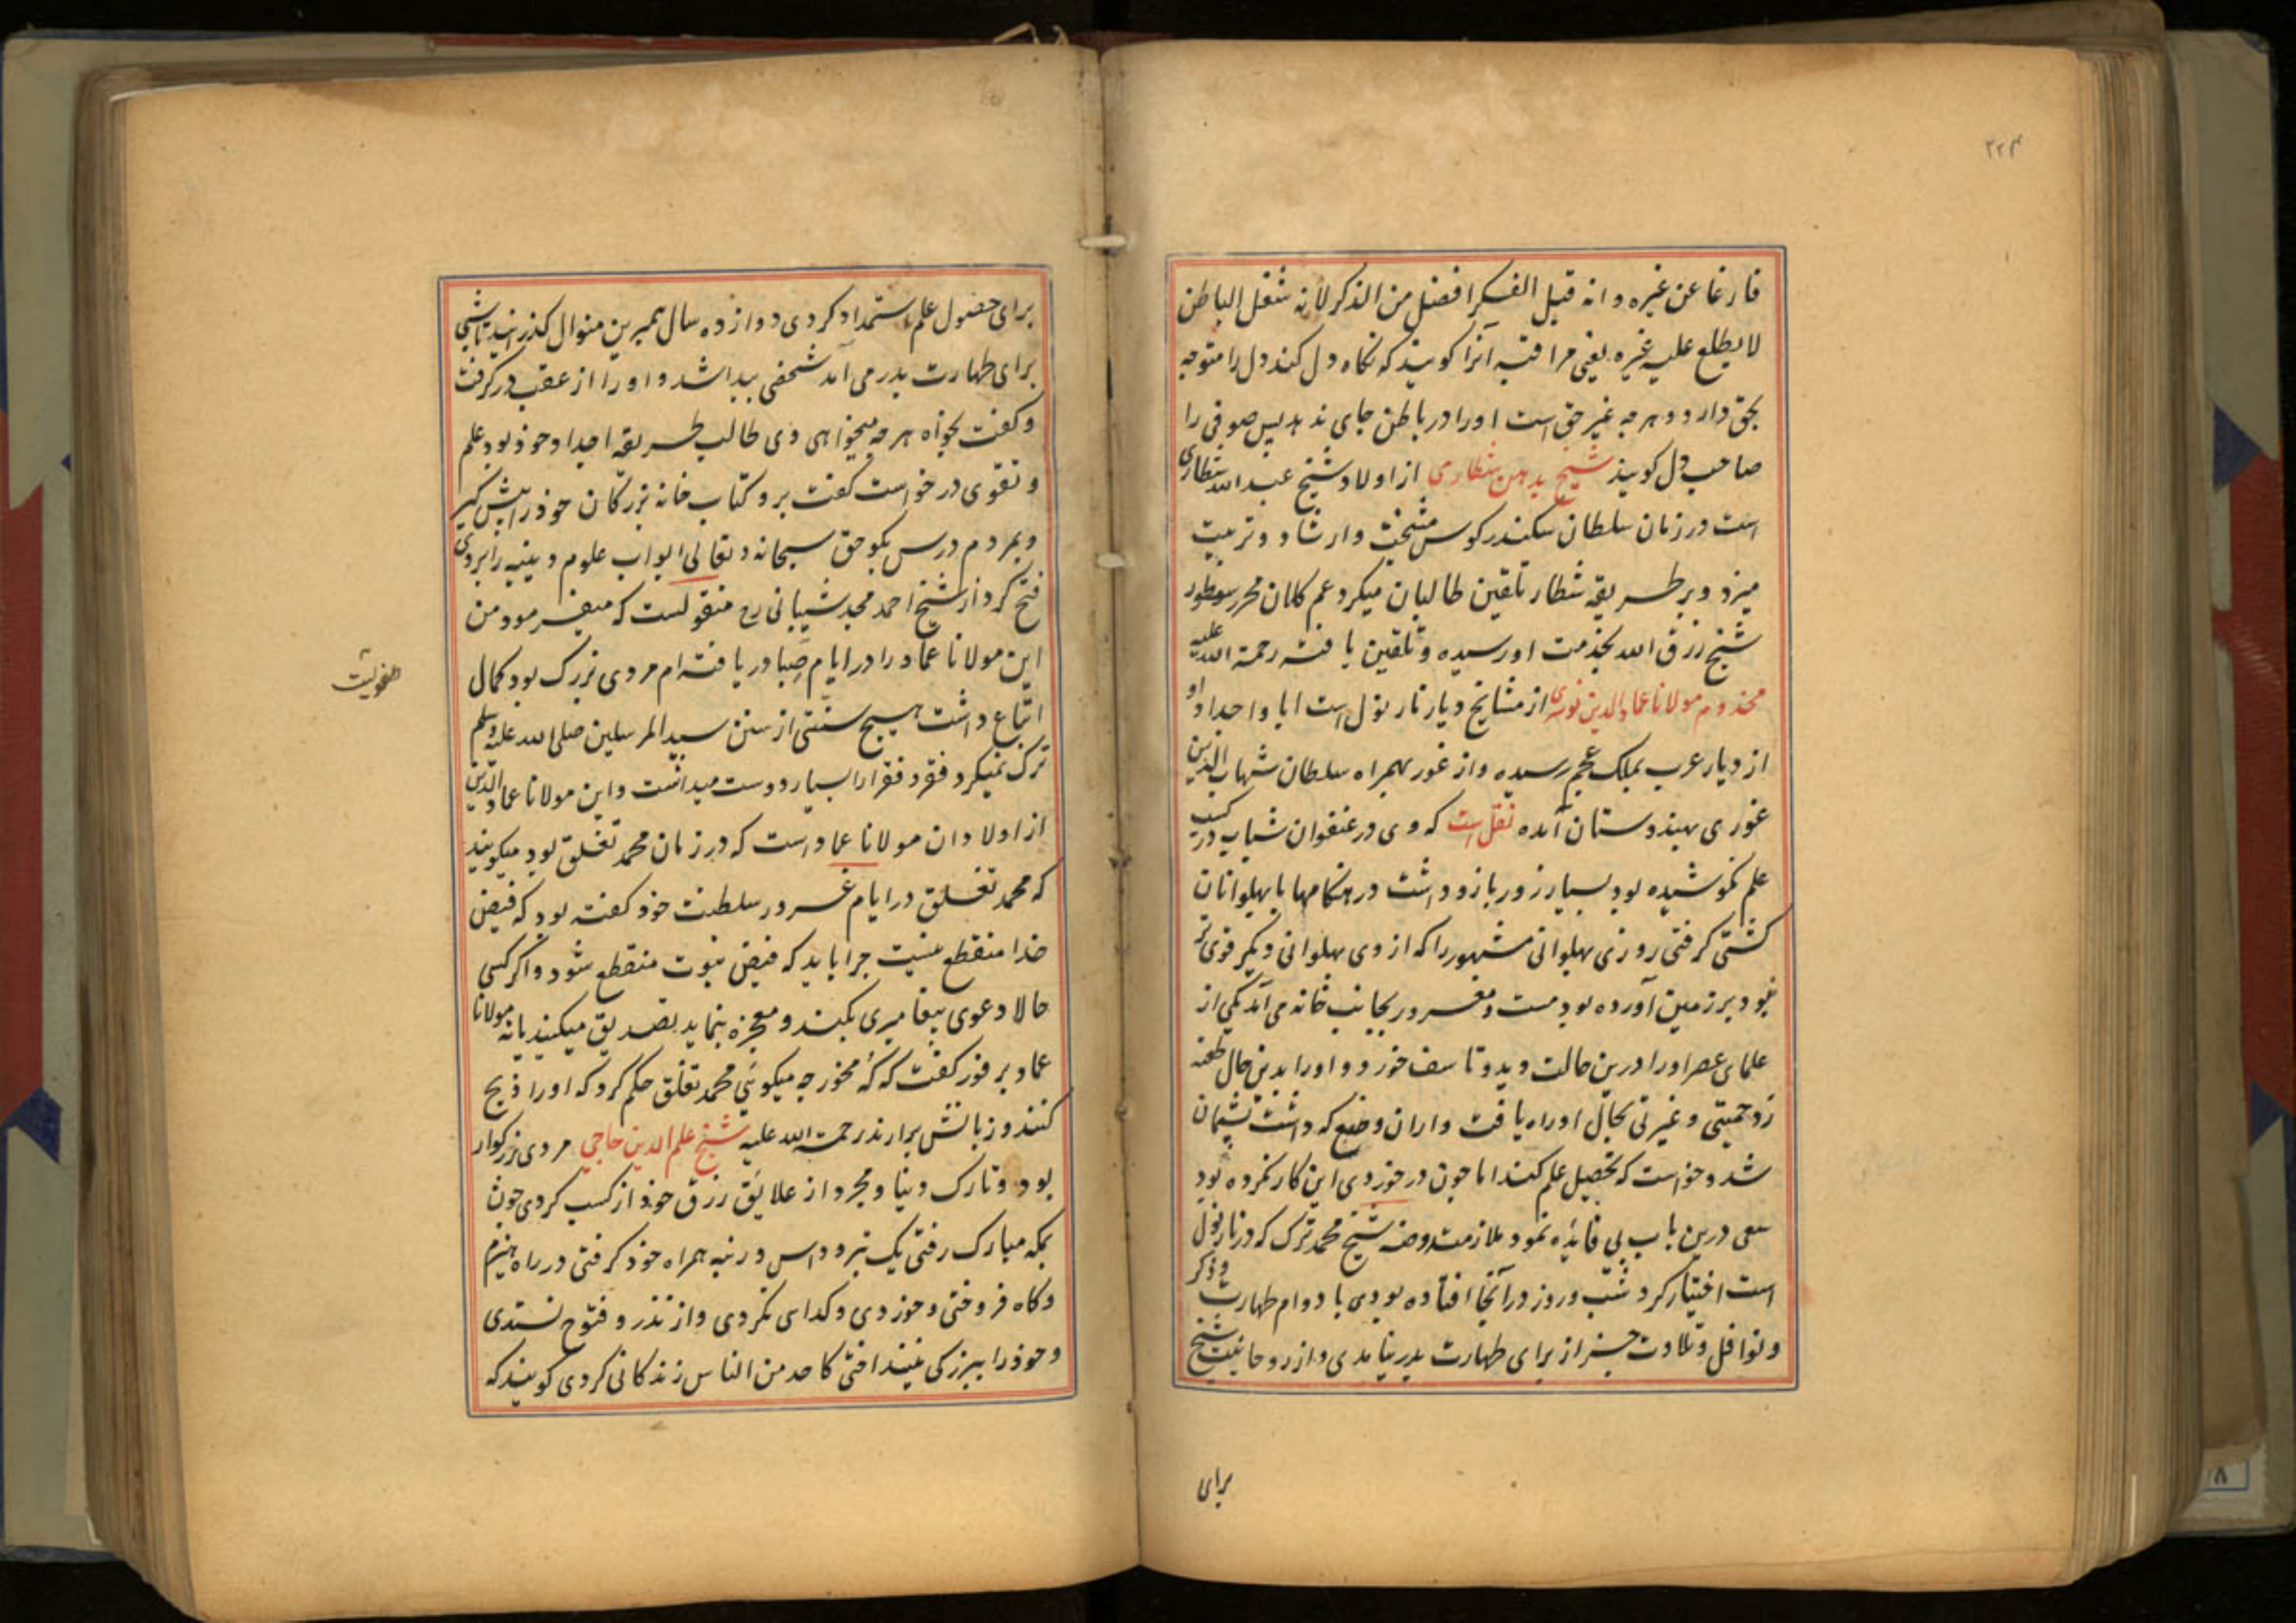 ۲۲۴
فارغا عن غیره و انه قیل الفکر افضل من الذکر لانه شغل الباطن
لا یطلع علیه غیره یعنی مراقبه آنرا کویند که نکاه دل کند دل را متوجه
بحق دارد و هرچه غیر حق است او را در باطن جای ندهد پس صوفی را
صاحب دل کویند شیخ بدهن شطاری از اولاد شیخ عبد الله شطاری
است در زمان سلطان سکندر کوس مشیخت و ارشاد و تربیت
میزد و بر طریقه شطار تلقین طالبان میکرد عم کلان محرر سطور
شیخ رزق الله بخدمت او رسیده و تلقین یافته رحمة الله علیه
مخدوم مولانا عماد الدین از مشایخ دیار نارنول است ابا و اجداد او
از دیار عرب بملک عجم رسیده و از غور بهمراه سلطان شهاب الدین
غوری بهندوستان آمده نقل است که وی در عنفوان شباب در کسب
علم نکوشیده بود بسیار زور بازو داشت در هنکامها با پهلوانان
کشتی کرفتی روزی پهلوانی مشهور را که از وی پهلوانی دیکر قوی تر
نبود بر زمین آورده بود مست و مغرور بجانب خانه می آمد یکی از
علمای عصر او را درین حالت دید و تاسف خورد و او را بدین حال طعنه
زد حمیتی و غیرتی بحال او راه یافت و ازان وضع که داشت پشیمان
شد و خواست که تحصیل علم کند اما چون در خوردی این کار نکرده بود
سعی درین باب بی فایده نمود ملازمت روضه شیخ محمد ترک که در نارنول
است اختیار کرد شب و روز در آنجا افتاده بودی با دوام طهارت و ذکر
و نوافل و تلاوت جز از برای طهارت بدر نیامدی و از روحانیت شیخ
برای
برای حصول علم استمداد کردی دوازده سال همبرین منوال کذرانید تا شبی
برای طهارت بدر می آمد شخصی پیدا شد و او را از عقب در کرفت
و کفت بخواه هرچه میخواهی وی طالب طریقه اجداد خود بود علم
و تقوی درخواست کفت برو کتاب خانه بزرکان خود را پیش کیر
و بمردم درس بکو حق سبحانه و تعالی ابواب علوم دینیه را بروی
فتح کرد از شیخ احمد مجد شیبانی رح منقولست که میفرمود من
این مولانا عماد را در ایام صبا دریافته ام مردی بزرک بود کمال
اتباع داشت هیچ سنتی از سنن سید المرسلین صلی الله علیه وسلم
ترک نمیکرد فقر و فقرا را بسیار دوست میداشت و این مولانا عماد الدین
از اولاد ان مولانا عماد است که در زمان محمد تغلق بود میکویند
که محمد تغلق در ایام غرور سلطنت خود کفته بود که فیض
خدا منقطع نیست چرا باید که فیض نبوت منقطع شود و اکر کسی
حالا دعوی پیغامبری بکند و معجزه بنماید تصدیق میکنید یا نه مولانا
عماد بر فور کفت که که مخور چه میکوئی محمد تغلق حکم کرد که او را ذبح
کنند و زبانش برارند رحمة الله علیه شیخ علم الدین حاجی مردی بزرکوار
بود و تارک دنیا و مجرد از علایق رزق خود از کسب کردی چون
بمکه مبارک رفتی یک تبر و داس و رنبه همراه خود کرفتی در راه هیزم
و کاه فروختی و خوردی و کدای نکردی و از نذر و فتوح نستدی
و خود را ببزرکی نینداختی کاحد من الناس زندکانی کردی کویند که